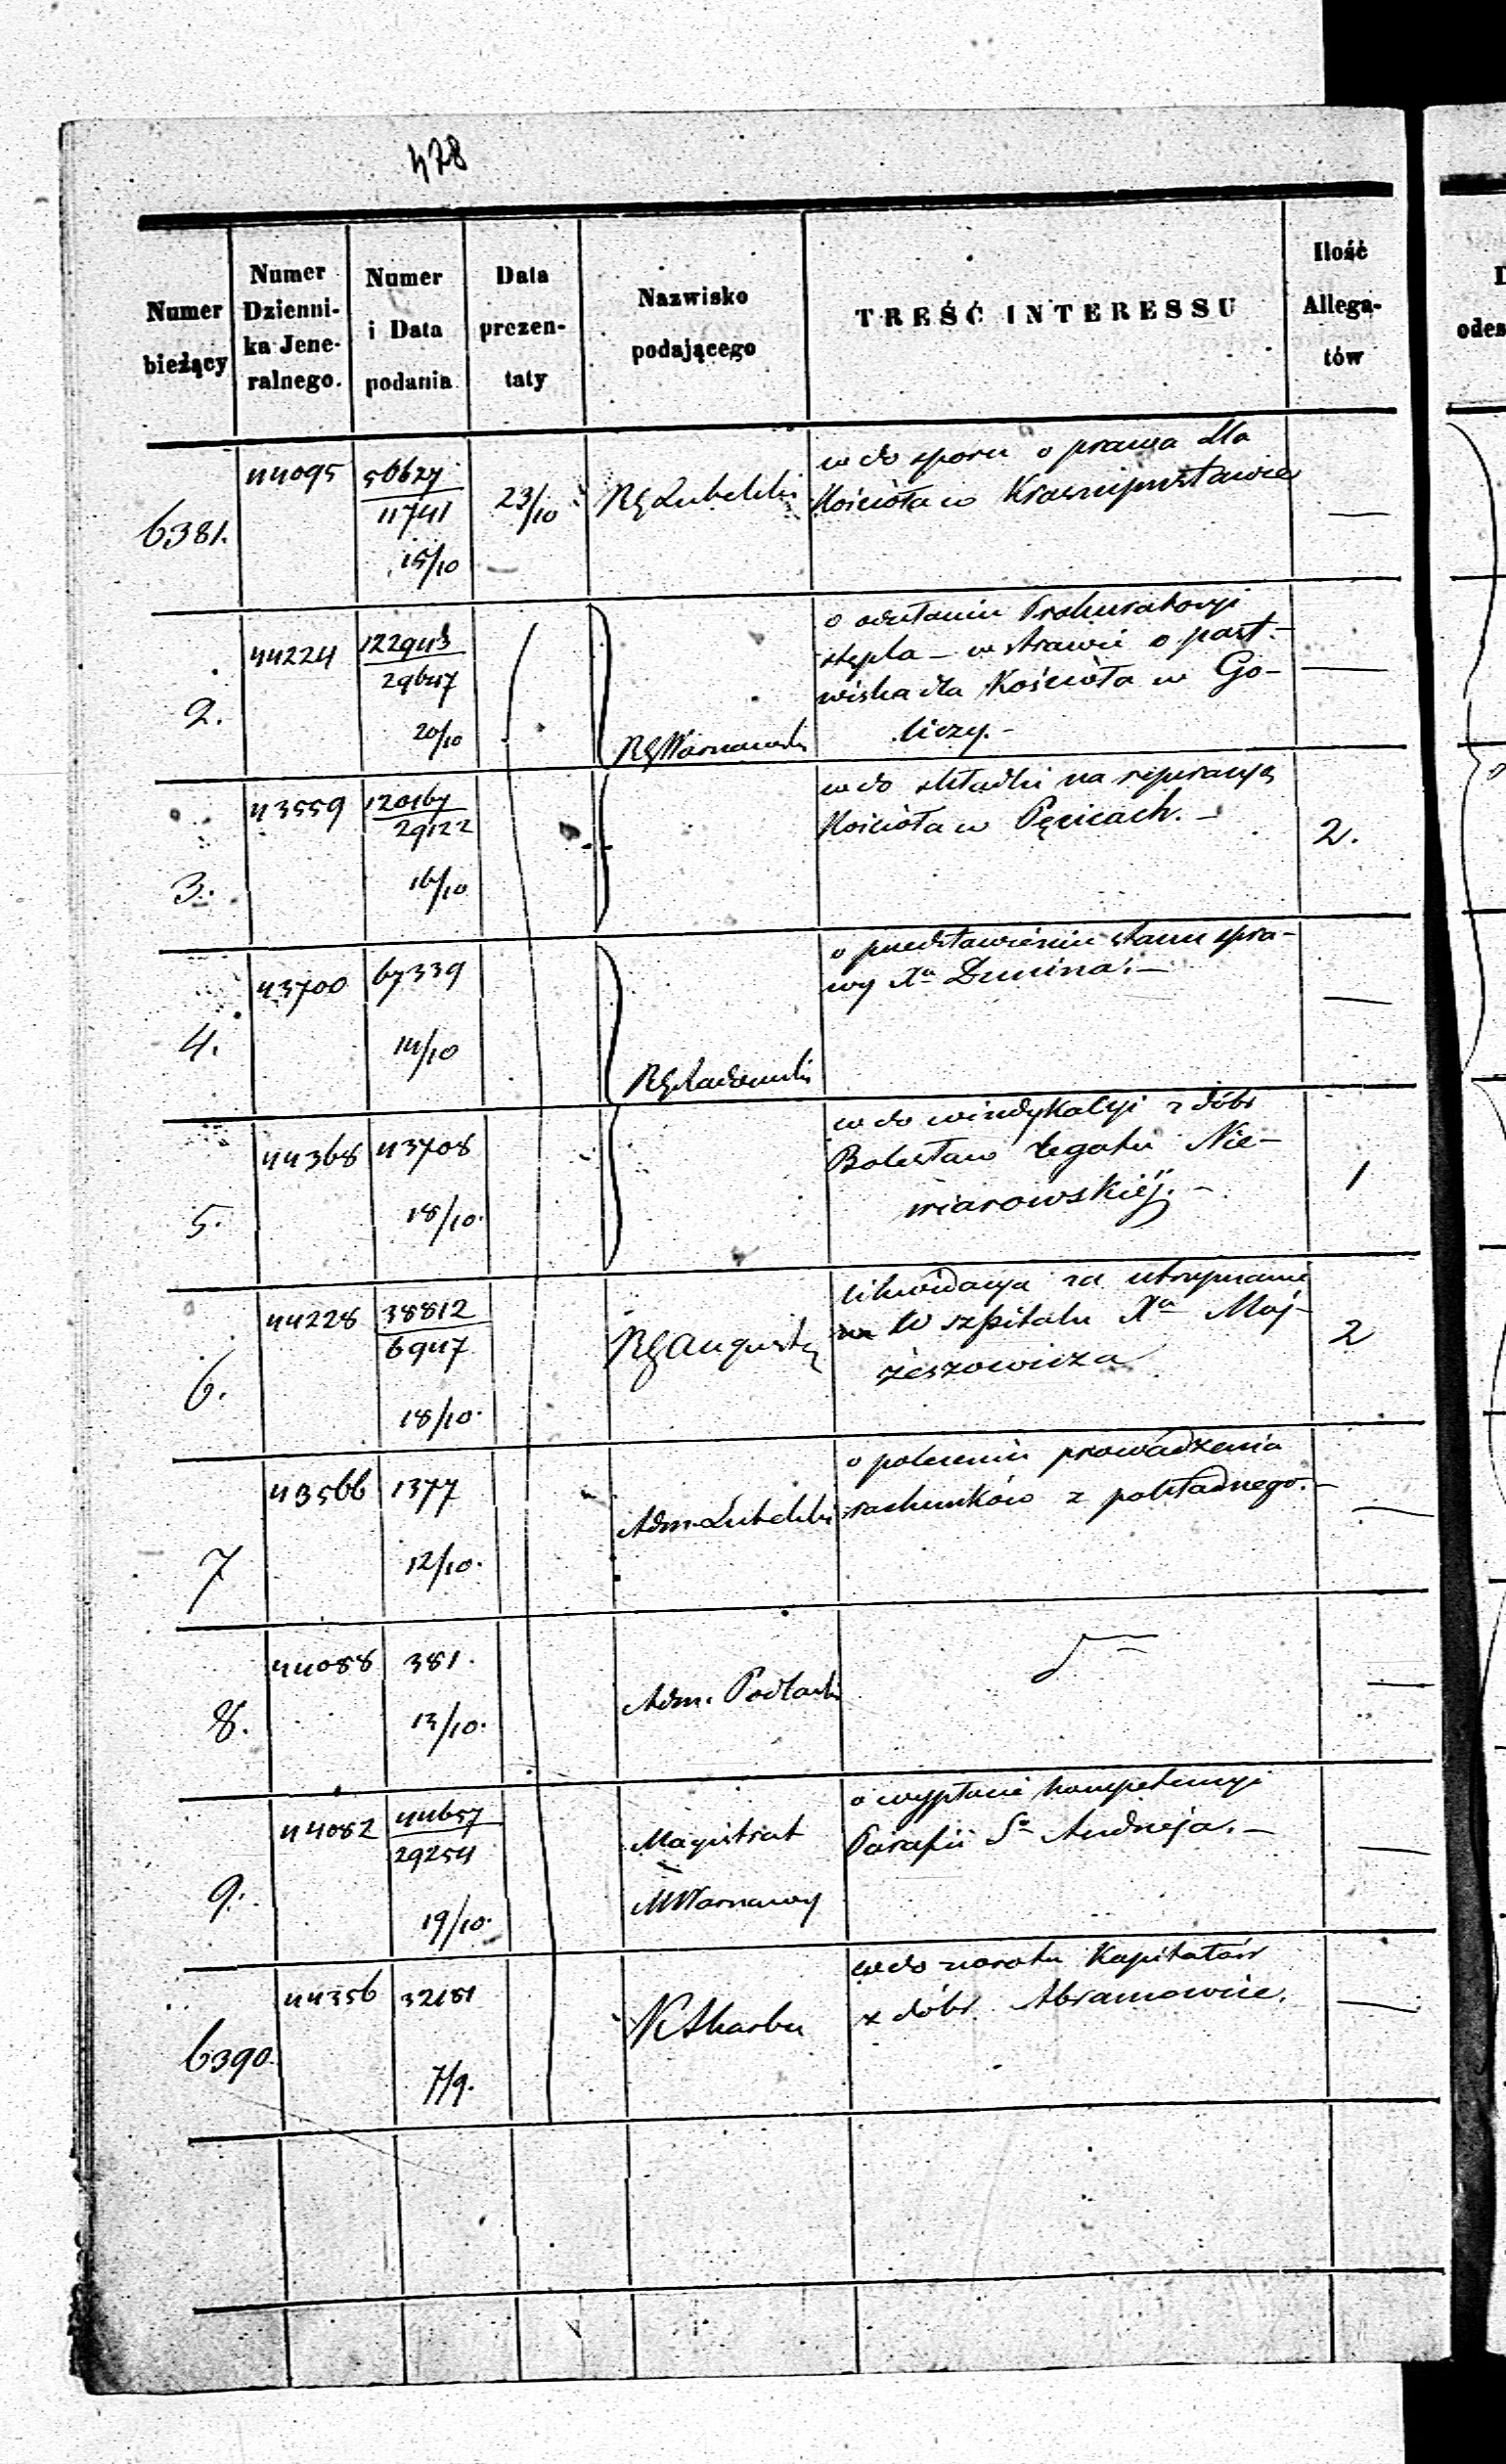 478
Numer bieżący
Numer Dzienni- ka Jene- ralnego.
Numer i Data podania
Data prezen- taty
Nazwisko podającego
TREŚĆ INTERESSU
Ilość Allega- tów
6381. 44095 50627 / 11741 15/10 23/10 RG Lubelski
w do sporu o prawa dla
Kościoła w Krasnymstawie —
2. 44224 122943 / 29647 20/10 RG Warszawski
o odesłaniu Prokuratoryi
stępla — w sprawie o past-
wiska dla Kościoła w Go-
liczy. — —
3. 43559 120167 / 29122 16/10
w do składki na reperacyą
Kościoła w Pęcicach. — 2.
4. 43700 67339 14/10 RG Radomski
o przedstawieniu stanu spra-
wy Xa Dunina. — —
5. 44368 43708 18/10.
w do windykacyi z dóbr
Bolesław legatu Nie-
wiarowskiéj. — 1
6. 44228 38812 / 6947 18/10. RG August
likwidacya za utrzymanie
w szpitalu Xa Moj-
żeszowicza 2
7 43566 1377 12/10. Adm. Lubelski
o poleceniu prowadzenia
rachunków z pokładnego. — —
8. 44088 381. 13/10. Adm. Podlaski —
9. 44082 44657 / 29254 19/10. Magistrat
M Warszawy
o wypłacie kompetencyi
Parafii Sgo Andrzeja. — —
6390. 44356 32181 7/9. K Skarbu
w do zwrotu Kapitałów
z dóbr Abramowice. —